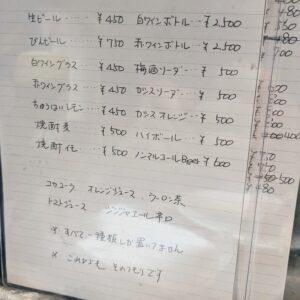 生ビール … ¥450 白ワインボトル … ¥2,500
びんビール … ¥750 赤ワインボトル … ¥2,500
白ワイングラス ¥450 梅酒ソーダ … ¥500
赤ワイングラス … ¥450 カシスソーダ … ¥500
ちゅうはいレモン … ¥450 カシスオレンジ … ¥500
焼酎 麦 ¥500 ハイボール ¥500
焼酎 イモ … ¥500 ノンアルコールBeer ¥600
コカコーラ オレンジジュース ウーロン茶
トマトジュース ジンジャエール辛口
※ すべて一種類しか置いてません
※ これからも そのつもりです